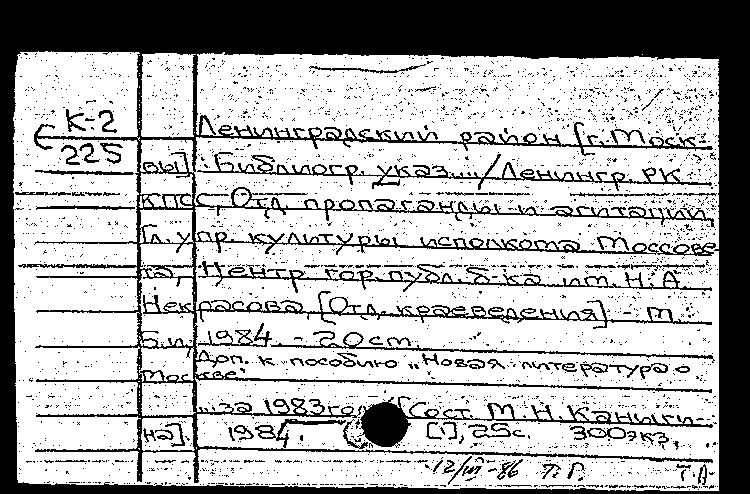 К-2
225
Ленинградский район [г. Моск-
вы] : Библиогр. указ... / Ленингр. РК
КПСС, Отд. пропаганды и агитации,
Гл. упр. культуры исполкома Моссове
та, Центр. гор. публ. б-ка им. Н. А.
Некрасова, [Отд. краеведения]. - М.
Б.и., 1984. - 20 см.
Доп. к пособию „Новая литература о
Москве"
...за 1983 год [Сост. М. Н. Каниги-
на]. 1984. [1], 25 с. 300 экз.
12/III-86 Т. Г. Т.А